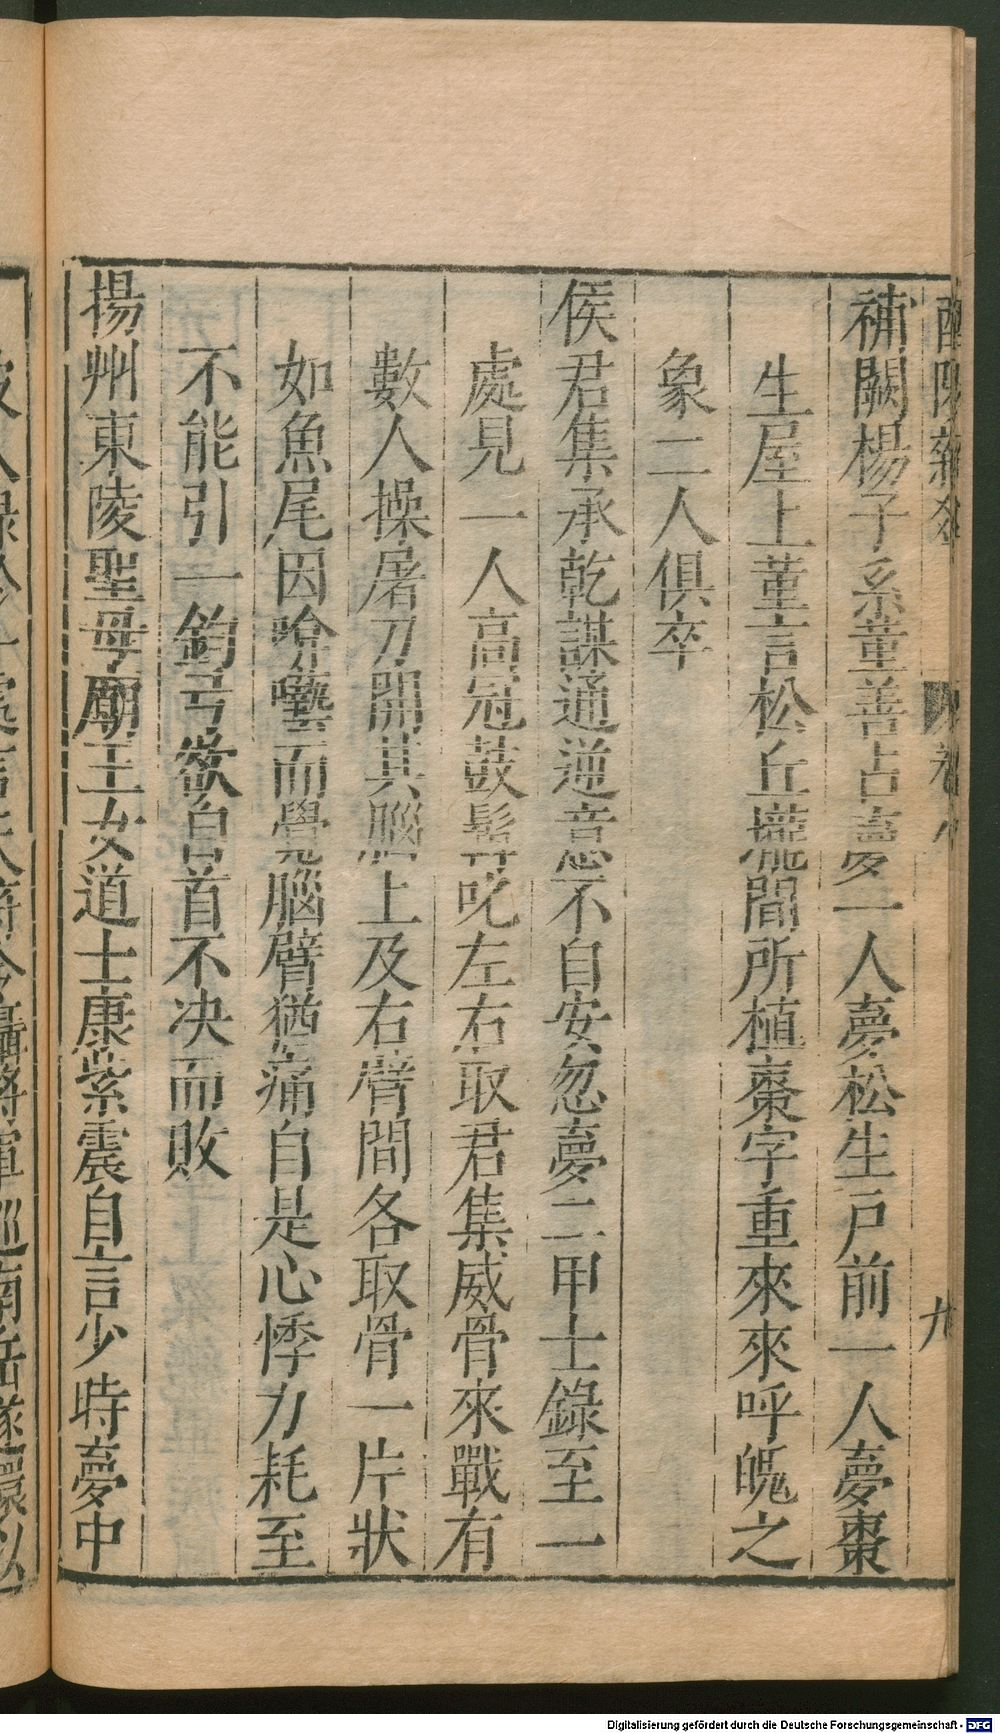 酉陽雜俎 卷八 九
補闕楊子系董善占夢一人夢松生戶前一人夢棗
生屋上董言松丘壠間所植棗字重來來呼魄之
象二人俱卒
侯君集承乾謀通逆意不自安忽夢二甲士錄至一
處見一人高冠鼓髯叱左右取君集威骨來戰有
數人操屠刀開其腦上及右臂間各取骨一片狀
如魚尾因啽囈而覺腦臂猶痛自是心悸力耗至
不能引一鈞弓欲自首不决而敗
揚州東陵聖母廟王女道士康紫震自言少時夢中
Digitalisierung gefördert durch die Deutsche Forschungsgemeinschaft - DFG